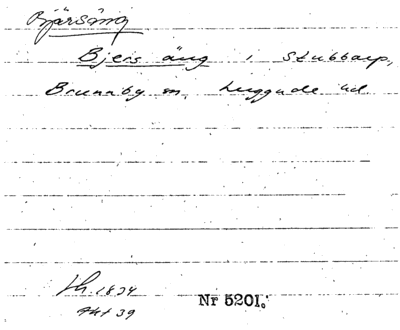 Bjärsäng
Bjers äng i Stubbarp,
Brunnby sn, Luggude hd.
Lh. 1834
Akt 39
Nr 5201.